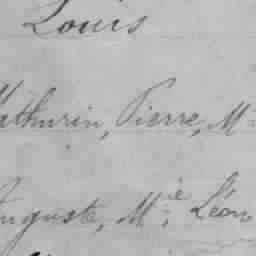 Louis
Mathurin, Pierre, M
Auguste, M.ie Léon